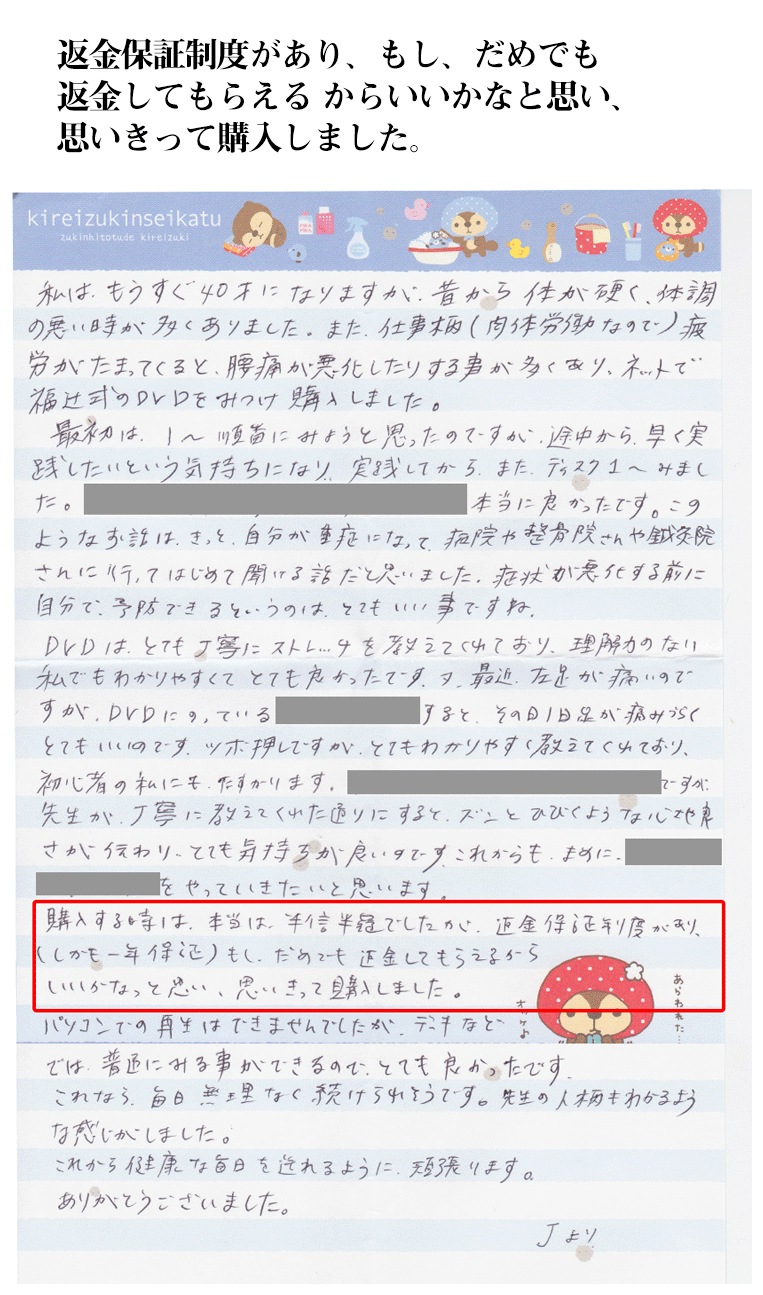 返金保証制度があり、もし、だめでも
返金してもらえる からいいかなと思い、
思いきって購入しました。
kireizukinseikatu
zukinhitotude kireizuki
私は、もうすぐ40才になりますが、昔から体が硬く、体調
の悪い時が多くありました。また、仕事柄(肉体労働なので)疲
労がたまってくると、腰痛が悪化したりする事が多くあり、ネットで
福辻式のDVDをみつけ購入しました。
最初は、1〜順番にみようと思ったのですが、途中から、早く実
践したいという気持ちになり、実践してから、また、ディスク1〜みまし
た。
本当に良かったです。この
ようなお話は、きっと、自分が重症になって、病院や整骨院さんや鍼灸院
さんに行ってはじめて聞ける話だと思いました。症状が悪化する前に
自分で、予防できるというのは、とてもいい事ですね。
DVDは、とても丁寧にストレッチを教えてくれており、理解力のない
私でもわかりやすくてとても良かったです。又、最近、左足が痛いので
すが、DVDにのっている
すると、その日1日足が痛みづらく
とてもいいのです。ツボ押しですが、とてもわかりやすく教えてくれており、
初心者の私にも、たすかります。
ですが、
先生が、丁寧に教えてくれた通りにすると、ズンとひびくような心地良
さが伝わり、とても気持ちが良いのです。これからも、まめに、
をやっていきたいと思います。
購入する時は、本当は、半信半疑でしたが、返金保証制度があり、
(しかも一年保証)もし、だめでも返金してもらえるから
いいかなっと思い、思いきって購入しました。
パソコンでの再生はできませんでしたが、デッキなど
では、普通にみる事ができるので、とても良かったです。
これなら、毎日無理なく続けられそうです。先生の人柄もわかるよう
な感じがしました。
これから健康な毎日を送れるように、頑張ります。
ありがとうございました。
Jより
あらわれた…
オケよ